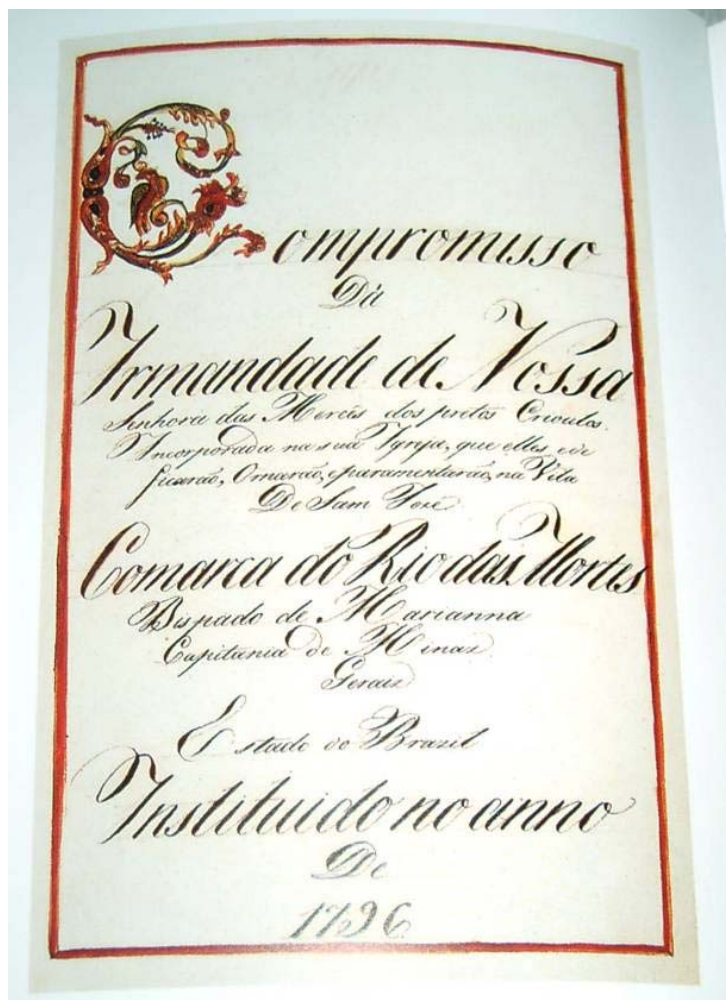 Compromisso
Da
Irmandade de Nossa
Senhora das Mercês dos pretos Crioulos.
Incorporada na sua Igreja, que elles, edi
ficarão, Ornarão, eparamentarão, na Vila
De Sam José
Comarca do Rio das Mortes
Bispado de Marianna
Capitania de Minaz
Geraiz
Estado do Brazil
Instituido no anno
De
1796